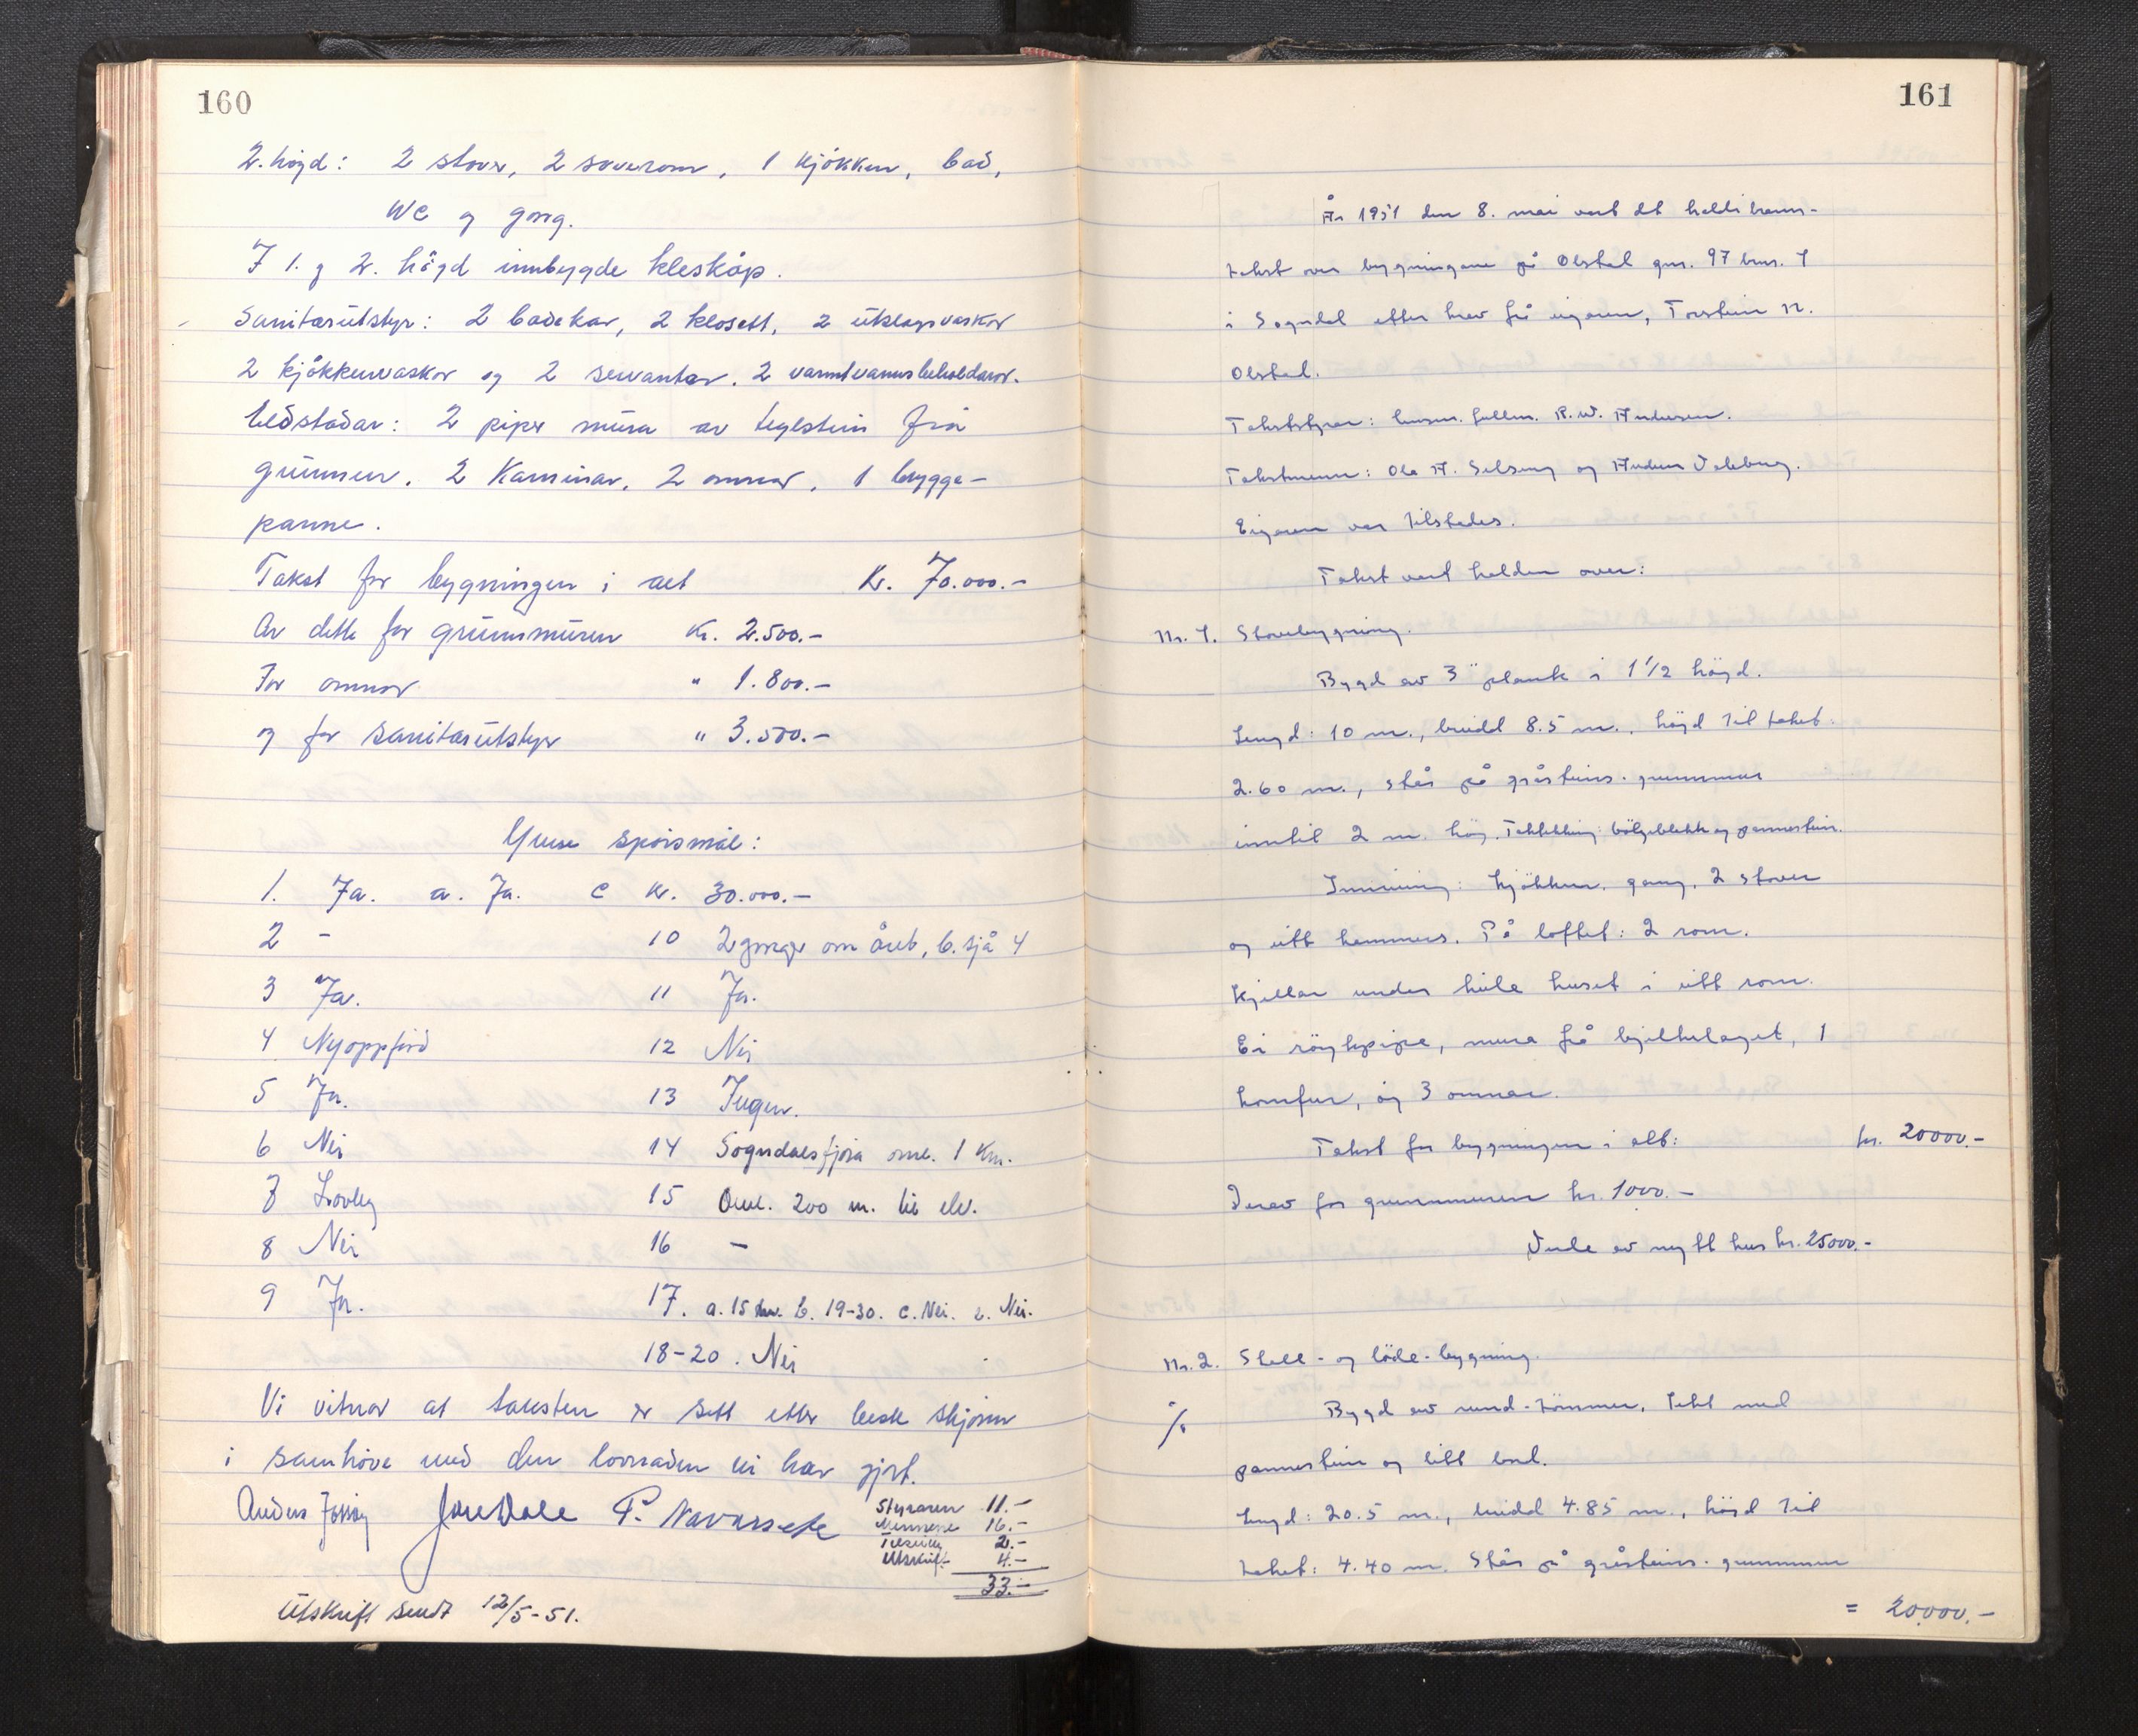 160
2. högd: 2 stover, 2 soverom, 1 kjökken, bad,
WC og gang.
I 1. og 2. högd innbygde kleskåp.
Sanitærutstyr: 2 badekar, 2 klosett, 2 utslagsvaskar
2 kjökkenvaskar og 2 servantar. 2 varmtvannsbeholdarar.
Eldstadar: 2 piper mura av teglstein frå
grunnen. 2 Kaminar. 2 omnar, 1 brygge-
panne.
Takst for bygningen i alt Kr. 70.000.-
Av dette for grunnmuren Kr. 2.500.-
For omnar " 1.800.-
og for sanitærutstyr " 3.500.-
Ymse spörsmål:
1. Ja. a. Ja. c Kr. 30.000.-
2 - 10 2 gonger om året, b. sjå 4
3 Ja. 11 Ja.
4 Nyoppförd 12 Nei
5 Ja. 13 Ingen.
6 Nei 14 Sogndalsfjöra oml. 1 Km.
7 Lovleg 15 Oml. 200 m. til elv.
8 Nei 16 -
9 Ja. 17. a. 15 b. 19-30. c. Nei. Nei.
18-20. Nei
Vi vitnar at taksten er sett etter beste skjönn
i samhöve med den lovnaden vi har gjort.
Anders Jon Dale P. Navarsete
Styraren 11.-
Mennene 16.-
2.-
Utskrift 4.-
33.-
Utskrift sendt 12/5-51.
161
År 1951 den 8. mai vart det halde brann-
takst over bygningane på Olstad gnr. 97 bnr. 1
i Sogndal etter krav frå eigaren, Torstein N.
Olstad.
Takststyrar: lensm. fullm. R. W. Andersen.
Takstmenn: Ola A. Selseng og Anders
Eigaren var tilstades.
Takst vart halden over:
Nr. 1. Stovebygning.
Bygd av 3" plank i 1 1/2 högd.
Lengd: 10 m., breidd 8.5 m., högd til taket
2.60 m., står på gråsteins-grunnmur
inntil 2 m. høg. Taktekking: bölgeblekk og pannestein.
Innreiing: kjökken, gang, 2 stover
og eitt kammers. På loftet: 2 rom.
Kjellar under heile huset i eitt rom.
Ei röykpipe, mura frå bjelkelaget, 1
komfur, og 3 omnar.
Takst for bygningen i alt: kr. 20000.-
Derav for grunnmuren kr. 1000.-
Verde av nytt hus kr. 25000.-
Nr. 2. Stall- og löde-bygning.
Bygd av rund-tömmer, tekt med
pannestein og litt bord.
Lengd: 20.5 m., breidd 4.85 m., högd til
taket: 4.40 m. Står på gråsteins-grunnmur
= 20000.-